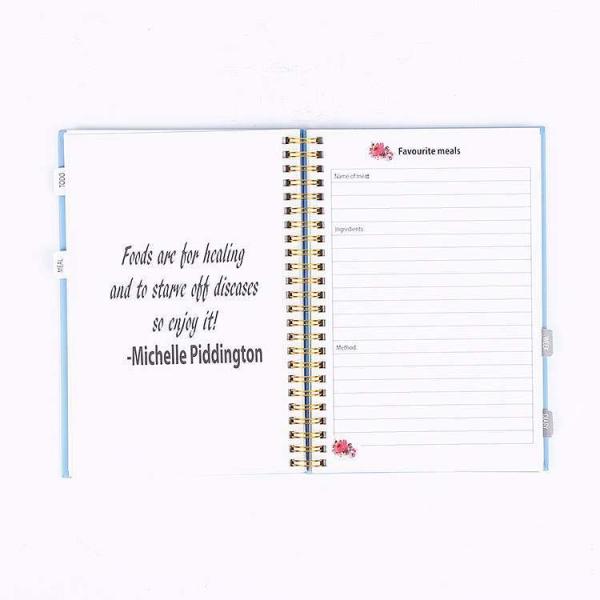 TODO
MEAL
Foods are for healing
and to starve off diseases
so enjoy it!
-Michelle Piddington
Favourite meals
Name of meal:
Ingredients:
Method: